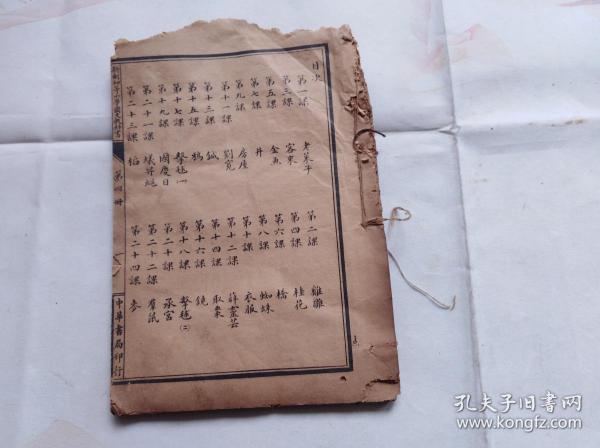 目次
第一課 老萊子
第三課 客來
第五課 金魚
第七課 井
第九課 房屋
第十一課 劉寬
第十三課 鍼
第十五課 鴉
第十七課 擊毬(一)
第十九課 國慶日
第二十一課 蟻鬥蜓
第二十三課 稻
第二課 雞雛
第四課 桂花
第六課 橋
第八課 蜘蛛
第十課 衣服
第十二課 薛靈芸
第十四課 取棗
第十六課 鏡
第十八課 擊毬(二)
第二十課 承宮
第二十二課 羣鼠
第二十四課 麥
第四冊
中華書局印行
孔夫子旧书网
www.kongfz.com